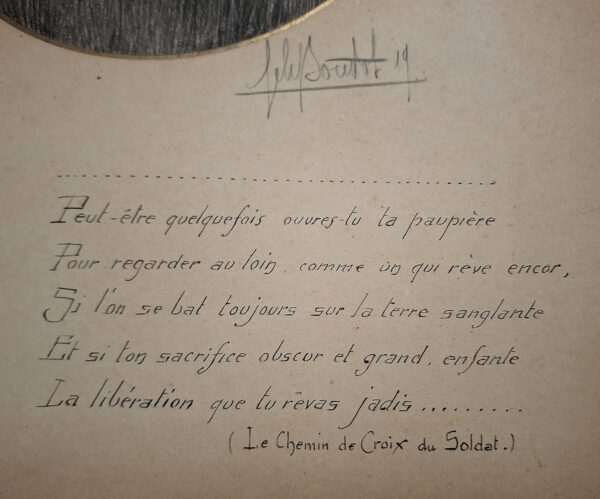 19.
Peut-être quelquefois ouvres-tu ta paupière
Pour regarder au loin, comme un qui rêve encor,
Si l'on se bat toujours sur la terre sanglante
Et si ton sacrifice obscur et grand, enfante
La libération que tu rêvas jadis.........
( Le Chemin de Croix du Soldat.)